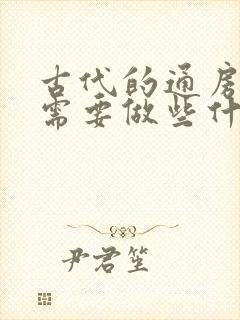 古代的通房
需要做些什
尹君笙